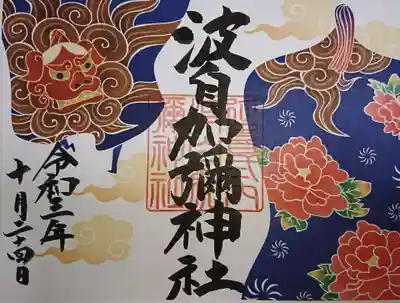 波自加彌神社
令和三年
十月二十四日